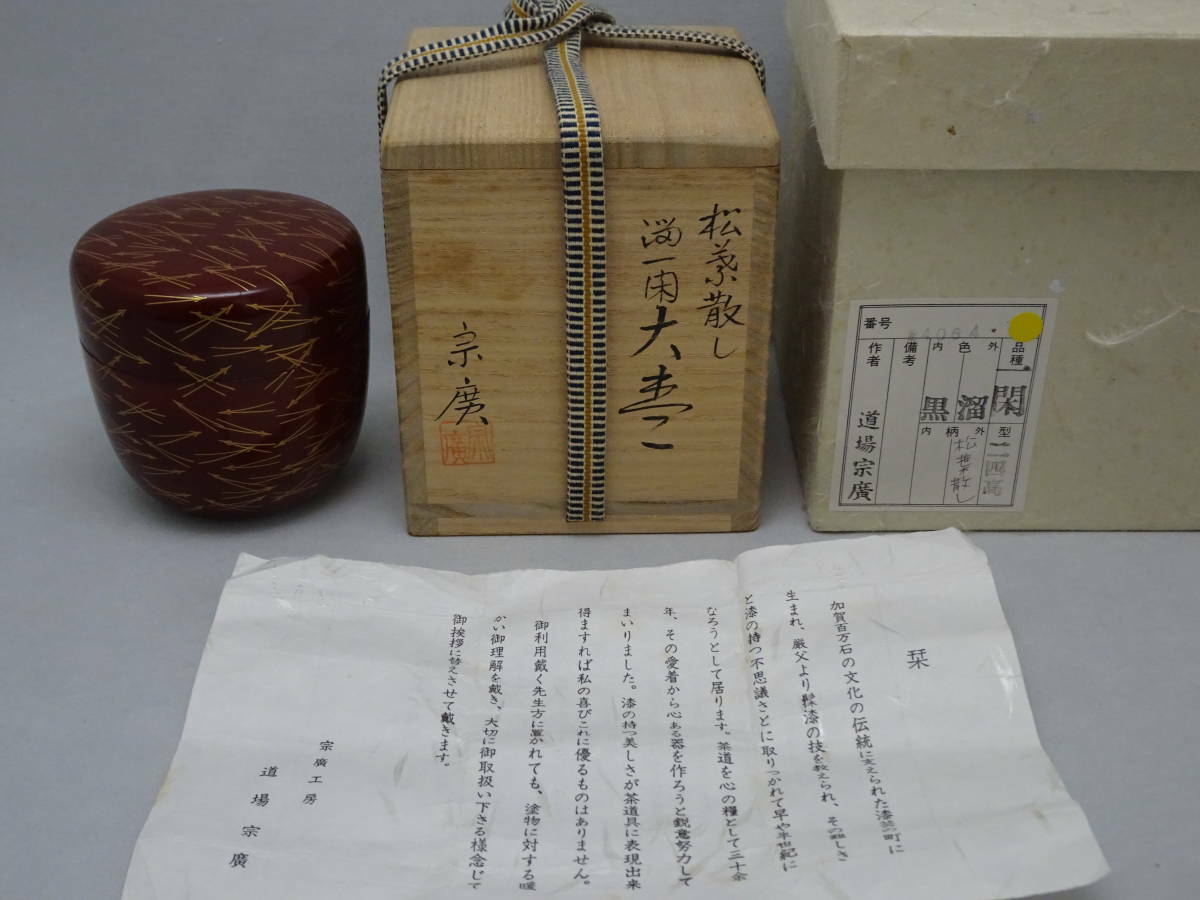 松葉散し
溜一閑大棗
宗廣
番号
4064
品種
一閑
型
外 色 内
溜
黒
外 柄 内
松葉散し
備考
作者
道場宗廣
栞
加賀百万石の文化の伝統に支えられた漆芸の町に
生まれ、厳父より髹漆の技を教えられ、その難しさ
と漆の持つ不思議さとに取りつかれて早や半世紀に
なろうとして居ります。茶道を心の糧として三十余
年、その愛着から心ある器を作ろうと鋭意努力して
まいりました。漆の持つ美しさが茶道具に表現出来
得ますれば私の喜びこれに優るものはありません。
御利用戴く先生方に置かれても、塗物に対する暖
かい御理解を戴き、大切に御取扱い下さる様念じて
御挨拶に替えさせて戴きます。
宗廣工房
道場宗廣